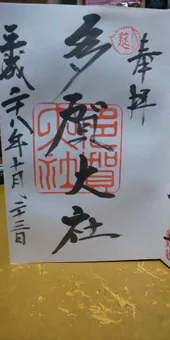 奉拝
多賀大社
多賀大社
平成二八年十月二十三日